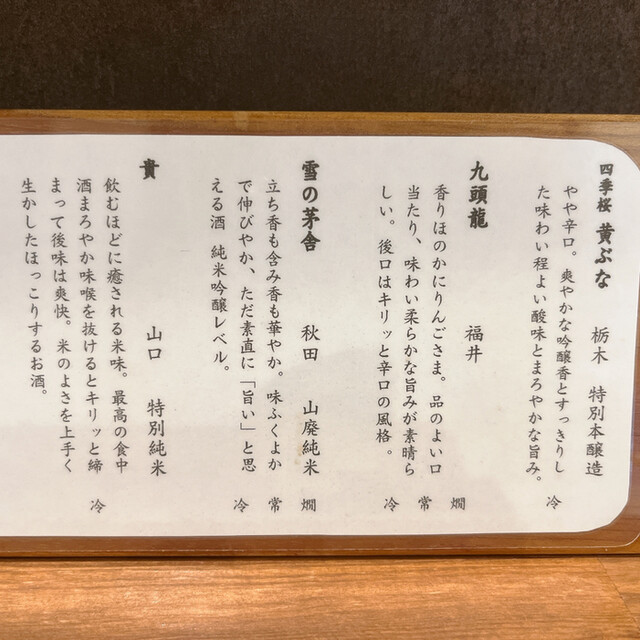 四季桜 黄ぶな 栃木 特別本醸造
やや辛口。爽やかな吟醸香とすっきりし
た味わい程よい酸味とまろやかな旨み。
冷
九頭龍 福井
香りほのかにりんごさま。品のよい口
当たり、味わい柔らかな旨みが素晴ら
しい。後口はキリッと辛口の風格。
燗
常
冷
雪の茅舎 秋田 山廃純米
立ち香も含み香も華やか。味ふくよか
で伸びやか、ただ素直に「旨い」と思
える酒 純米吟醸レベル。
燗
常
冷
貴 山口 特別純米
飲むほどに癒される米味。最高の食中
酒まろやか味喉を抜けるとキリッと締
まって後味は爽快。米のよさを上手く
生かしたほっこりするお酒。
冷